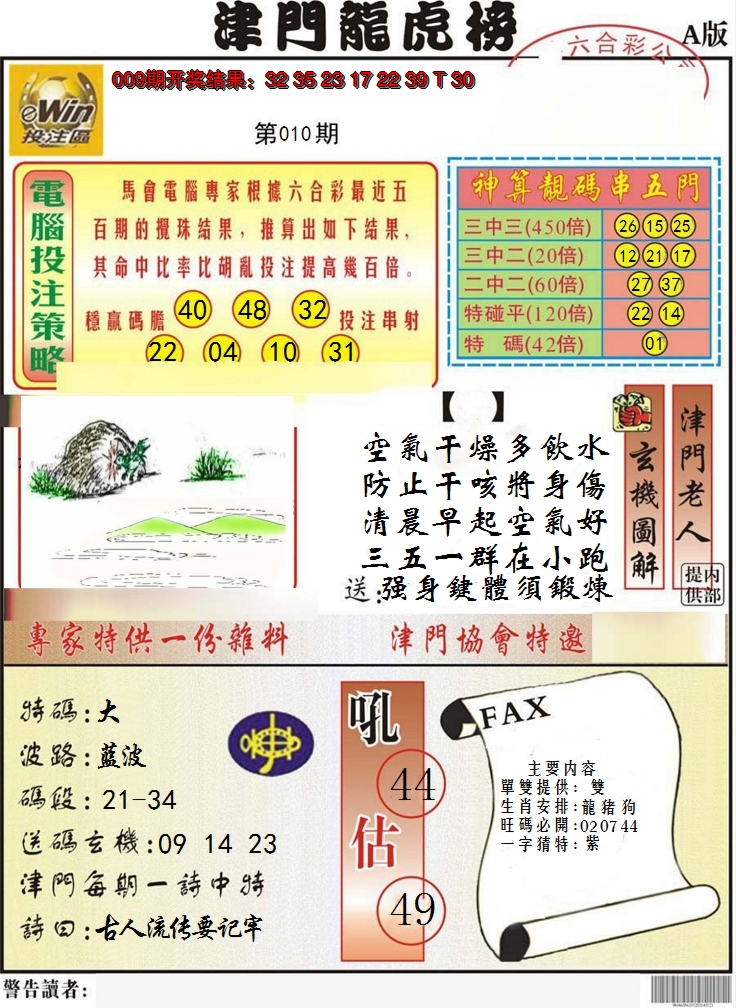 津門龍虎榜
六合彩公
A版
eWin
投注區
009期开奖结果：32 35 23 17 22 39 T 30
第010期
電腦投注策略
馬會電腦專家根據六合彩最近五
百期的攪珠结果，推算出如下结果，
其命中比率比胡亂投注提高幾百倍。
穩贏碼膽 40 48 32 投注串射
22 04 10 31
神算靚碼串五門
三中三(450倍) 26 15 25
三中二(20倍) 12 21 17
二中二(60倍) 27 37
特碰平(120倍) 22 14
特 碼(42倍) 01
【 】
空氣干燥多飲水
防止干咳將身傷
清晨早起空氣好
三五一群在小跑
送:强身鍵體須鍛煉
玄機圖解
津門老人
内部提供
專家特供一份雜料
津門協會特邀
特碼:大
波路:藍波
碼段:21-34
送碼玄機:09 14 23
津門每期一詩中特
詩曰:古人流传要记牢
吼
44
估
49
FAX
主要内容
單雙提供：雙
生肖安排:龍豬狗
旺碼必開:020744
一字猜特:紫
警告讀者: